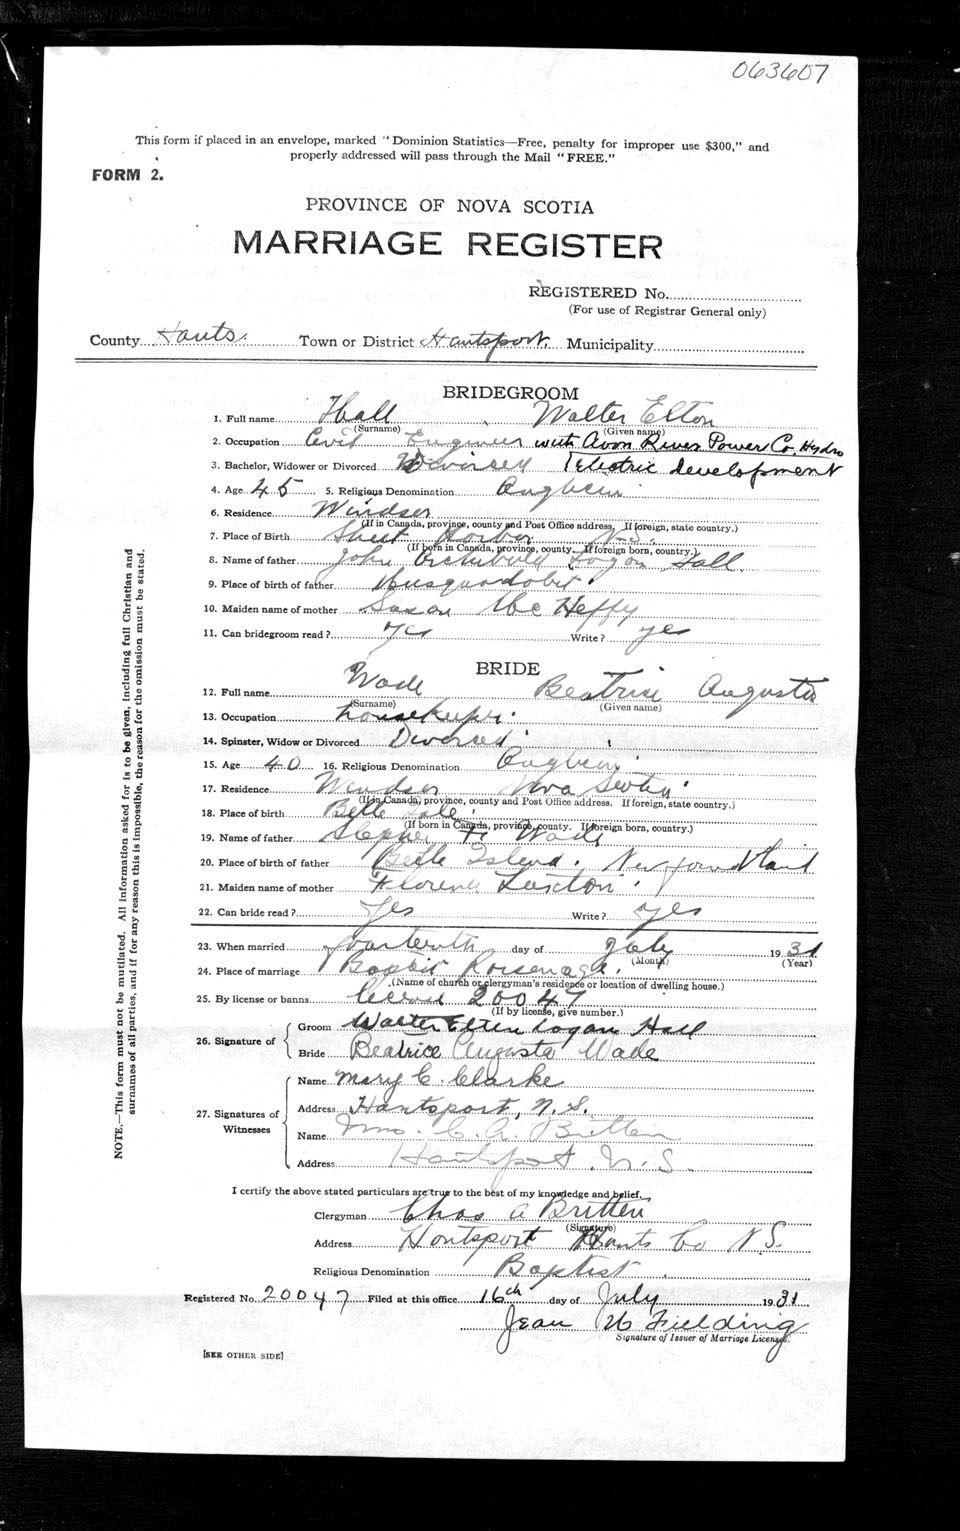 063607
This form if placed in an envelope, marked "Dominion Statistics—Free, penalty for improper use $300," and
properly addressed will pass through the Mail "FREE."
FORM 2.
PROVINCE OF NOVA SCOTIA
MARRIAGE REGISTER
REGISTERED No.
(For use of Registrar General only)
County Hants. Town or District Hantsport. Municipality
BRIDEGROOM
1. Full name Hall Walter Elton
(Surname) (Given name)
2. Occupation Civil Engineer with Avon River Power Co. Hydro
Electric development
3. Bachelor, Widower or Divorced Divorced
4. Age 45 5. Religious Denomination
6. Residence Windsor
(If in Canada, province, county and Post Office address. If foreign, state country.)
7. Place of Birth Sheet Harbor N.S.
(If born in Canada, province, county. If foreign born, country.)
8. Name of father John Archibald Logan Hall.
9. Place of birth of father Musquodobit.
10. Maiden name of mother Susan Mc Heffy
11. Can bridegroom read? yes Write? yes
BRIDE
12. Full name Wade Beatrice Augusta
(Surname) (Given name)
13. Occupation housekeeper.
14. Spinster, Widow or Divorced Divorced
15. Age 40 16. Religious Denomination
17. Residence Windsor Nova Scotia
(If in Canada, province, county and Post Office address. If foreign, state country.)
18. Place of birth Belle Isle
(If born in Canada, province, county. If foreign born, country.)
19. Name of father Stephen F. Wade
20. Place of birth of father Belle Island. Newfoundland
21. Maiden name of mother Florence
22. Can bride read? yes Write? yes
23. When married fourteenth day of July 1931
(Month) (Year)
24. Place of marriage Baptist
(Name of church or clergyman's residence or location of dwelling house.)
25. By license or banns license 20047
(If by license, give number.)
26. Signature of Groom Walter Elton Logan Hall
Bride Beatrice Augusta Wade
27. Signatures of Witnesses Name Mary C. Clarke
Address Hantsport, N.S.
Name Mrs. C. A. Britten
Address Hantsport N.S.
I certify the above stated particulars are true to the best of my knowledge and belief.
Clergyman Chas A Britten
(Signature)
Address Hantsport Hants Co N.S.
Religious Denomination Baptist
Registered No. 20047 Filed at this office 16th day of July 1931
Jean W Fielding
Signature of Issuer of Marriage License.
[SEE OTHER SIDE]
NOTE.—This form must not be mutilated. All information asked for is to be given, including full Christian and
surnames of all parties, and if for any reason this is impossible, the reason for the omission must be stated.